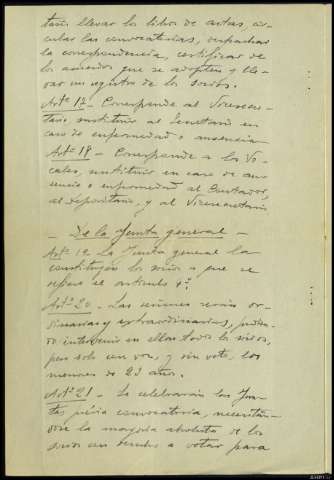 tario llevar los libros de actas, cir-
cular las convocatorias, despachar
la correspondencia, certificar de
los acuerdos que se adopten y lle-
var un registro de los socios.
Artº 17 - Corresponde al Vicesecre-
tario sustituir al Secretario en
caso de enfermedad o ausencia
Artº 18 - Corresponde a los Vo-
cales, sustituir en caso de au-
sencia o enfermedad al Contador,
al Depositario, y al Vicesecretario
- De la Junta general -
Artº 19 La Junta general la
constituyen los socios a que se
refiere el artículo 4º.
Artº 20 - Las reuniones serán or-
dinarias y extraordinarias, pudien-
do intervenir en ellas todos los socios,
pero solo con voz, y sin voto, los
menores de 23 años.
Artº 21 - Se celebrarán las Jun-
tas previa convocatoria, necesitán-
dose la mayoría absoluta de los
socios con derecho a votar para